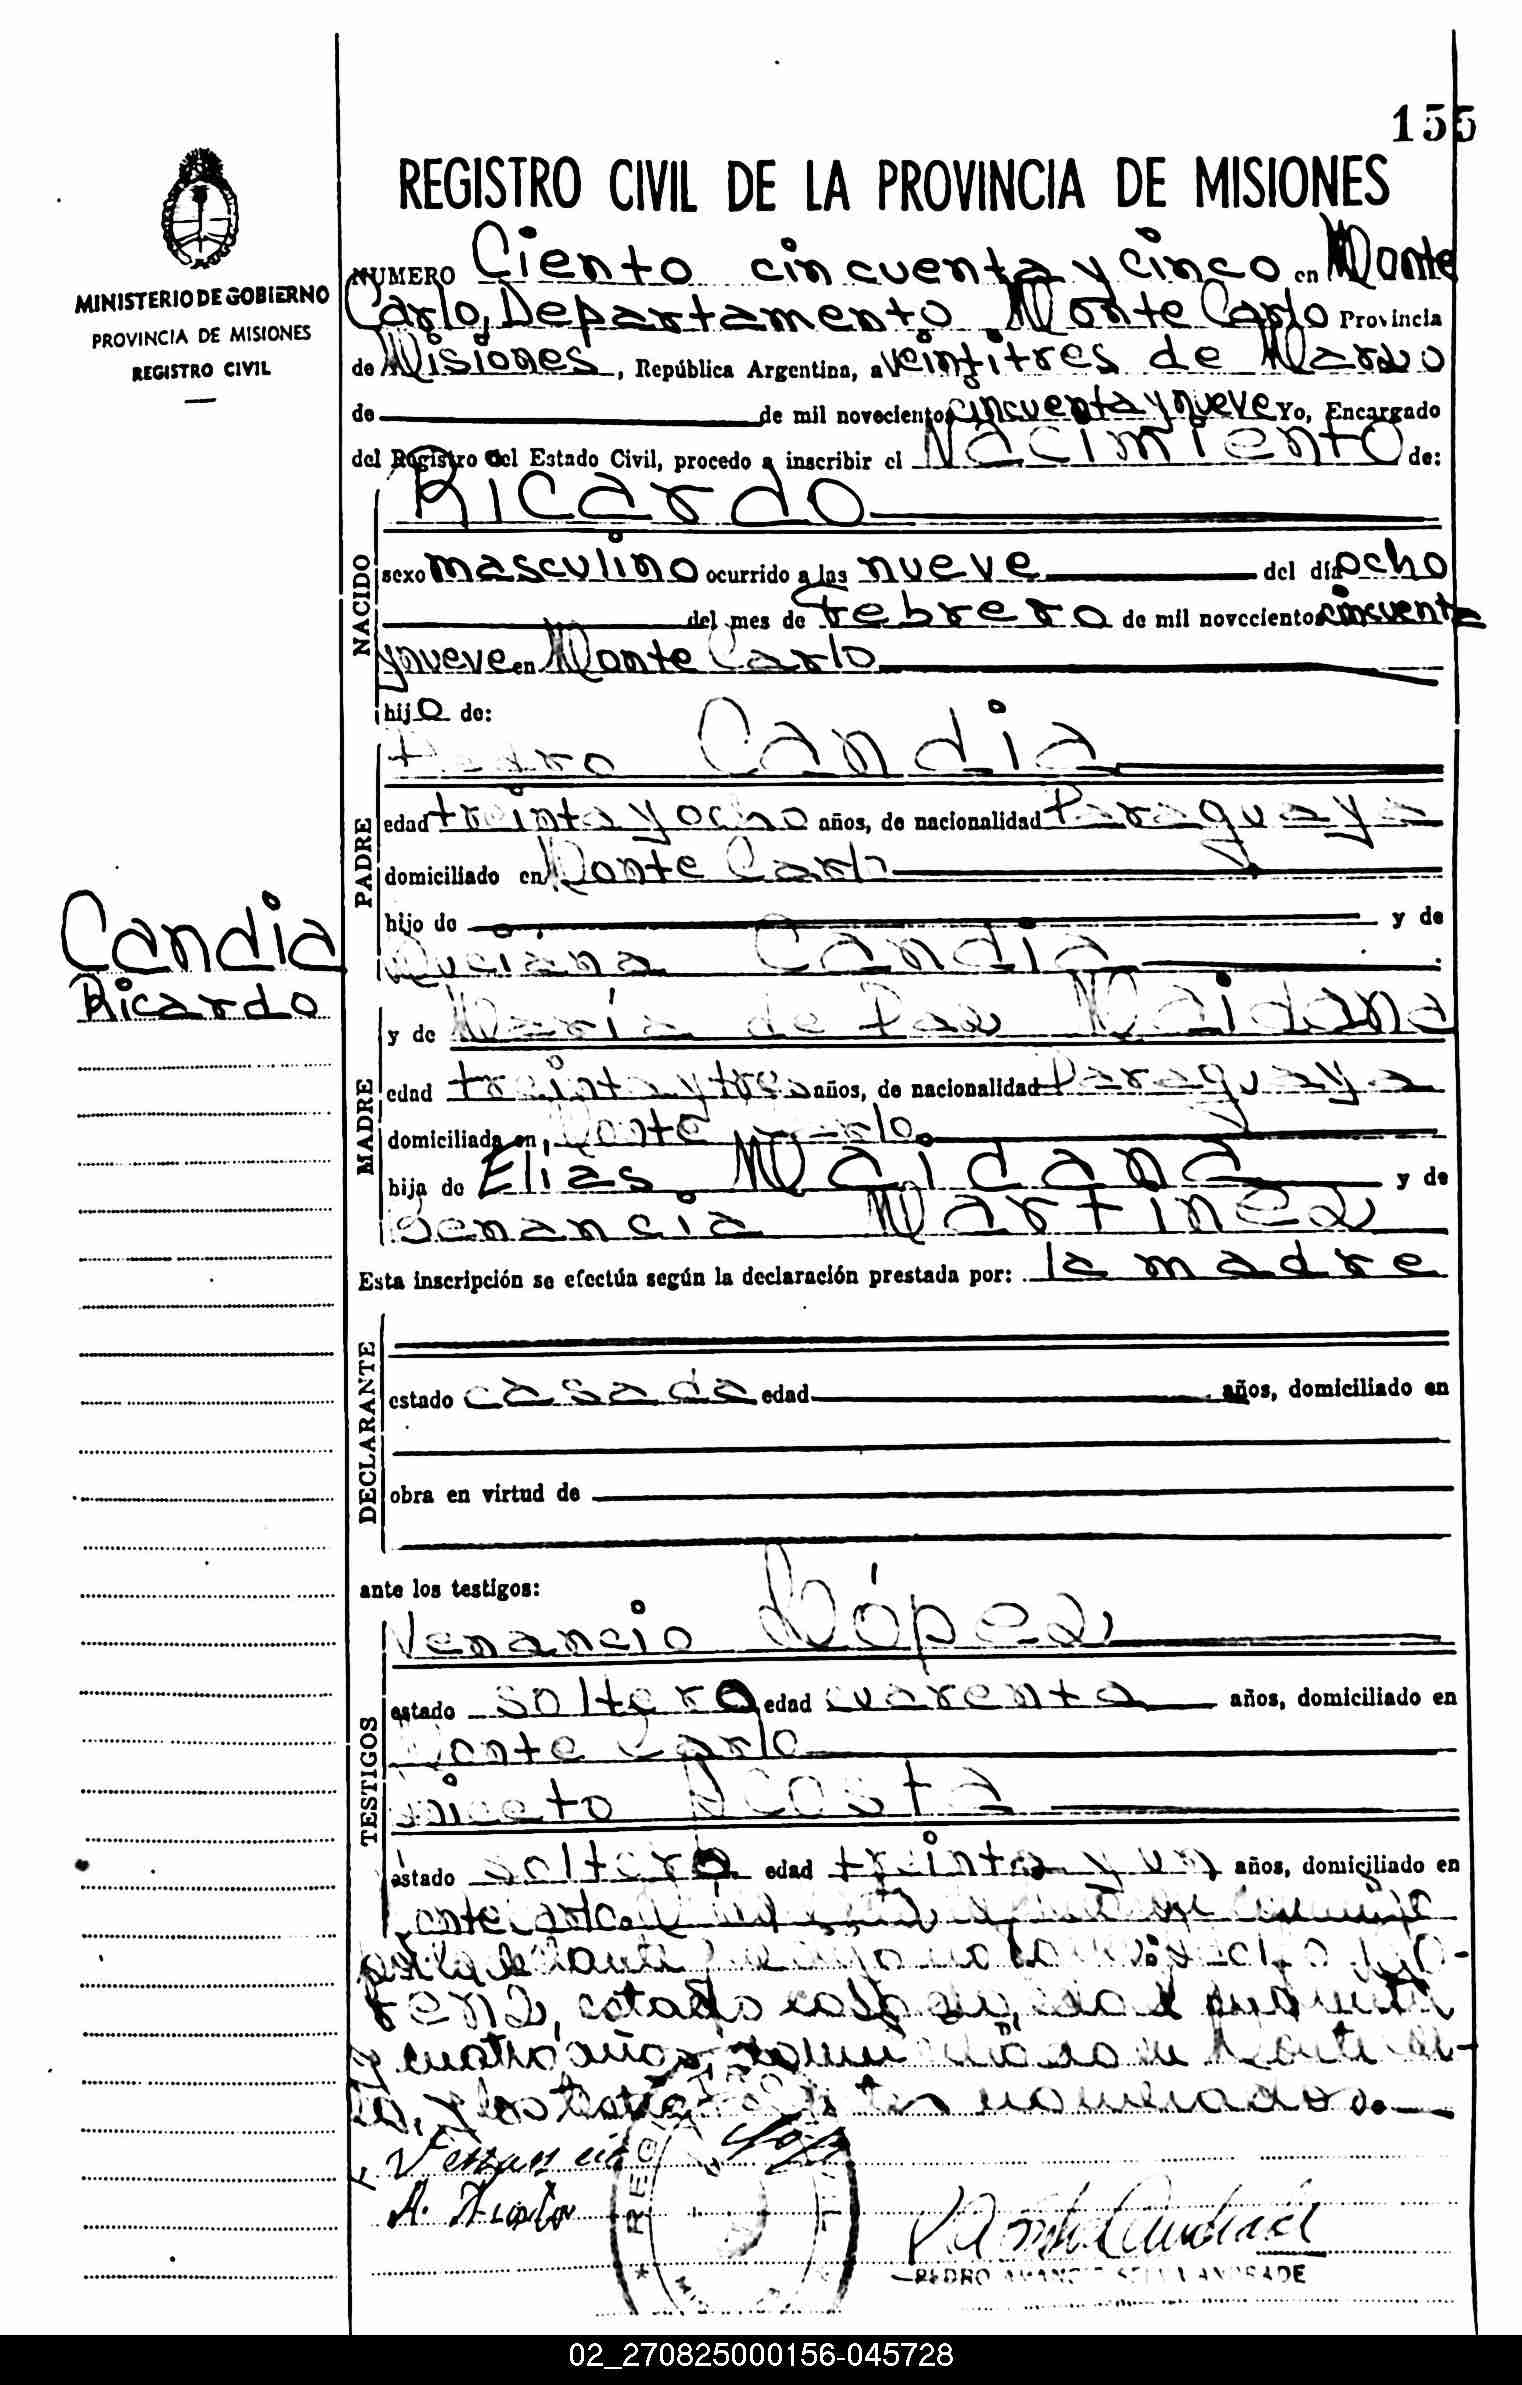 155
REGISTRO CIVIL DE LA PROVINCIA DE MISIONES
MINISTERIO DE GOBIERNO
PROVINCIA DE MISIONES
REGISTRO CIVIL
NUMERO Ciento cincuenta y cinco en Monte
Carlo, Departamento Monte Carlo Provincia
de Misiones, República Argentina, a veintitres de Marzo
de de mil novecientos cincuenta y nueve Yo, Encargado
del Registro del Estado Civil, procedo a inscribir el Nacimiento de:
Ricardo
NACIDO
sexo masculino ocurrido a las nueve del día ocho
del mes de Febrero de mil novecientos cincuenta
y nueve en Monte Carlo
hijo de:
Pedro Candia
PADRE
edad treinta y ocho años, de nacionalidad Paraguaya
domiciliado en Monte Carlo
hijo de y de
Luciana Candia
Candia
Ricardo
y de María de Paz Maidana
MADRE
edad treinta y tres años, de nacionalidad Paraguaya
domiciliada en Monte Carlo
hija de Elias Maidana y de
Benancia Martinez
Esta inscripción se efectúa según la declaración prestada por: la madre
DECLARANTE
estado casada edad años, domiciliado en
obra en virtud de
ante los testigos:
Venancio López
TESTIGOS
estado soltero edad cuarenta años, domiciliado en
Monte Carlo
Aniceto Acosta
estado soltero edad treinta y un años, domiciliado en
estado
y cuatro años, en Monte Car-
lo, y los testigos nombrados.
Venancio López
PEDRO AMANCIO SILVA ANDRADE
02_270825000156-045728